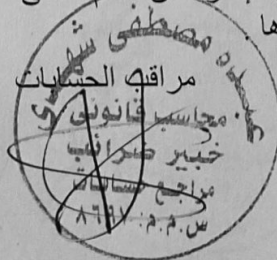 ها
مراقب الحسابات
عبده مصطفى
محاسب قانونى
خبير ضرائب
مراجع حسابات
س.م.م. ٨٦٩٧